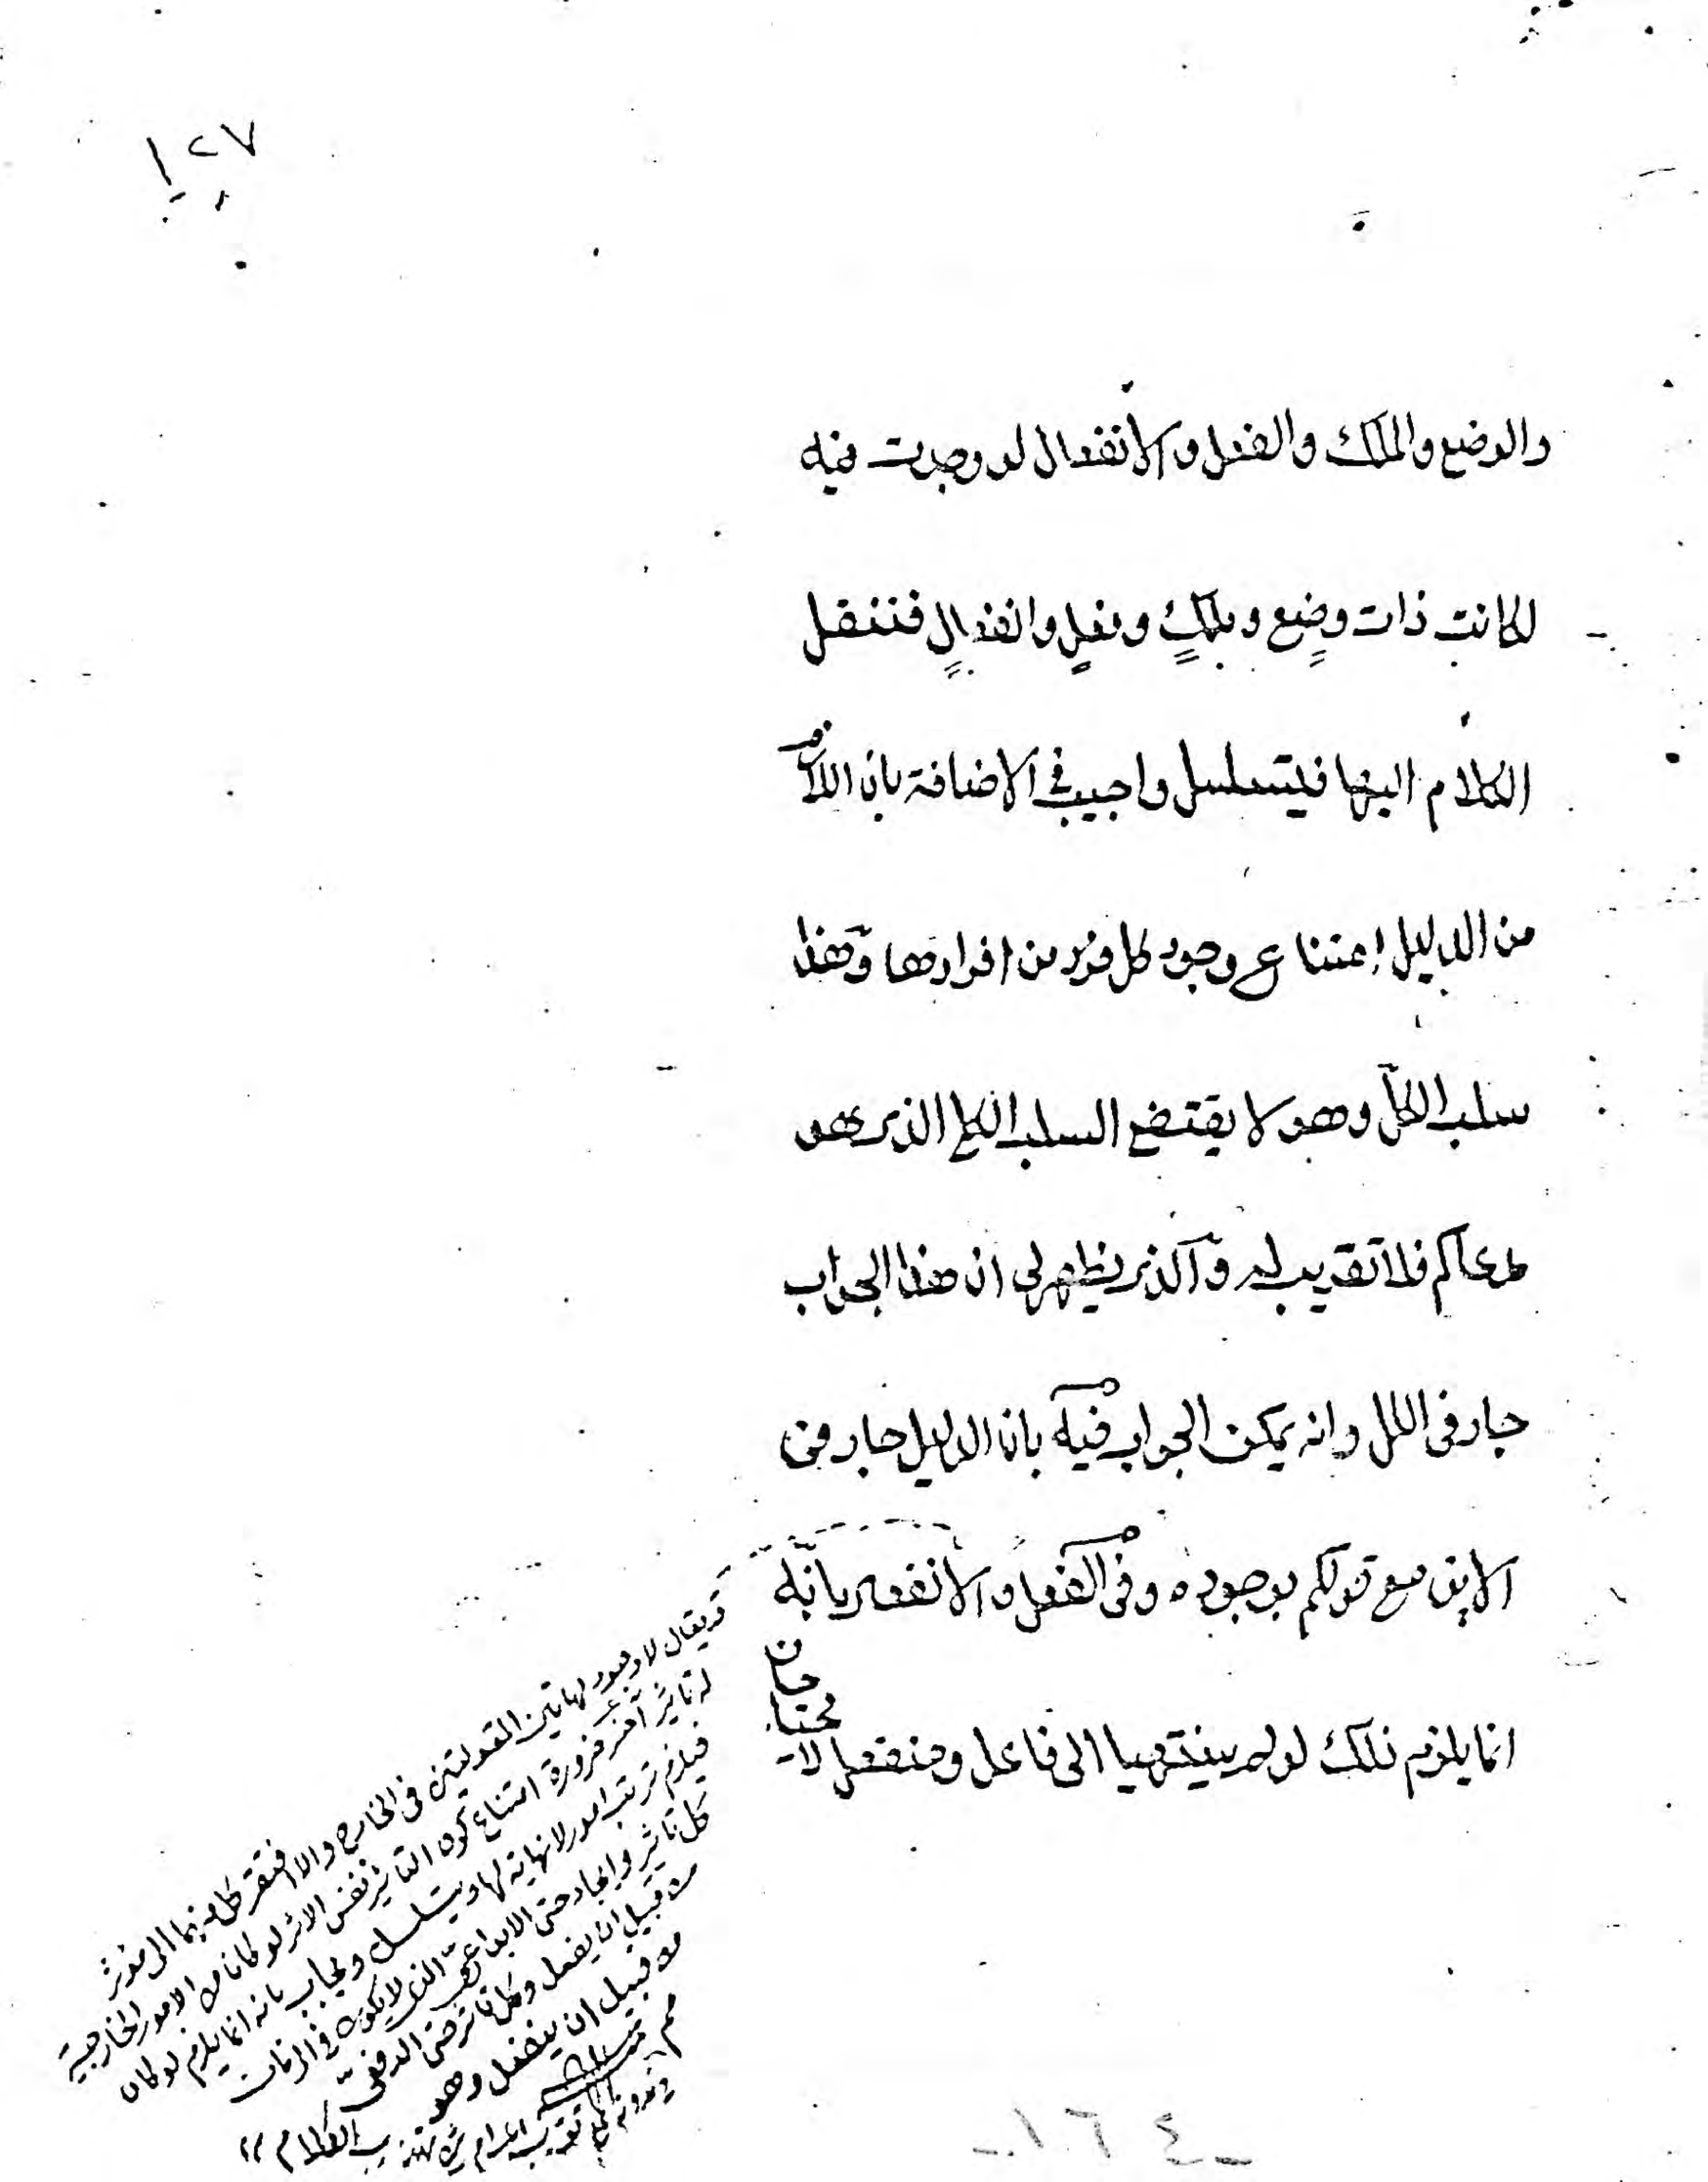 ١٢٧
والوضع والملك والفعل والانفعال لو وجدت فيه
لكانت ذات وضع وملكٍ وفعلٍ وانفعالٍ فننقل
الكلام اليها فيتسلسل واجيب فى الاضافة بان اللازم
من الدليل امتناع وجود كل فرد من افرادها وهذا
سلب الكل وهو لا يقتضى السلب الكلى الذى هو
مدعاكم فلا تقريب له والذى يظهر لى ان هذا الجواب
جار فى الكل وانه يمكن الجواب فيه بان الدليل جار فى
الاين مع قولكم بوجوده وفى الفعل والانفعال بانّه
انما يلزم ذلك لو لم ينتهيا الى فاعل ومنفعل لا يحتاجان
قد يقال لا وجود لهاتين المقولتين فى الخارج والا افتقر كل منهما الى مؤثر
له تأثير آخر ضرورة امتناع كون التأثير نفس الاثر لو كانا من الامور الخارجية
فيلزم ترتب امور لا نهاية لها ويتسلسل ويجاب بانه انما يلزم لو كان
كل تأثير وايجاد حتى الابداعى الذى لا يكون فى الزمان
من قبيل ان يفعل وكل تأثر حتى الدفعى
من قبيل ان ينفعل وهو
مم
تقريب المرام شرح تهذيب الكلام
- ١٦٤ -